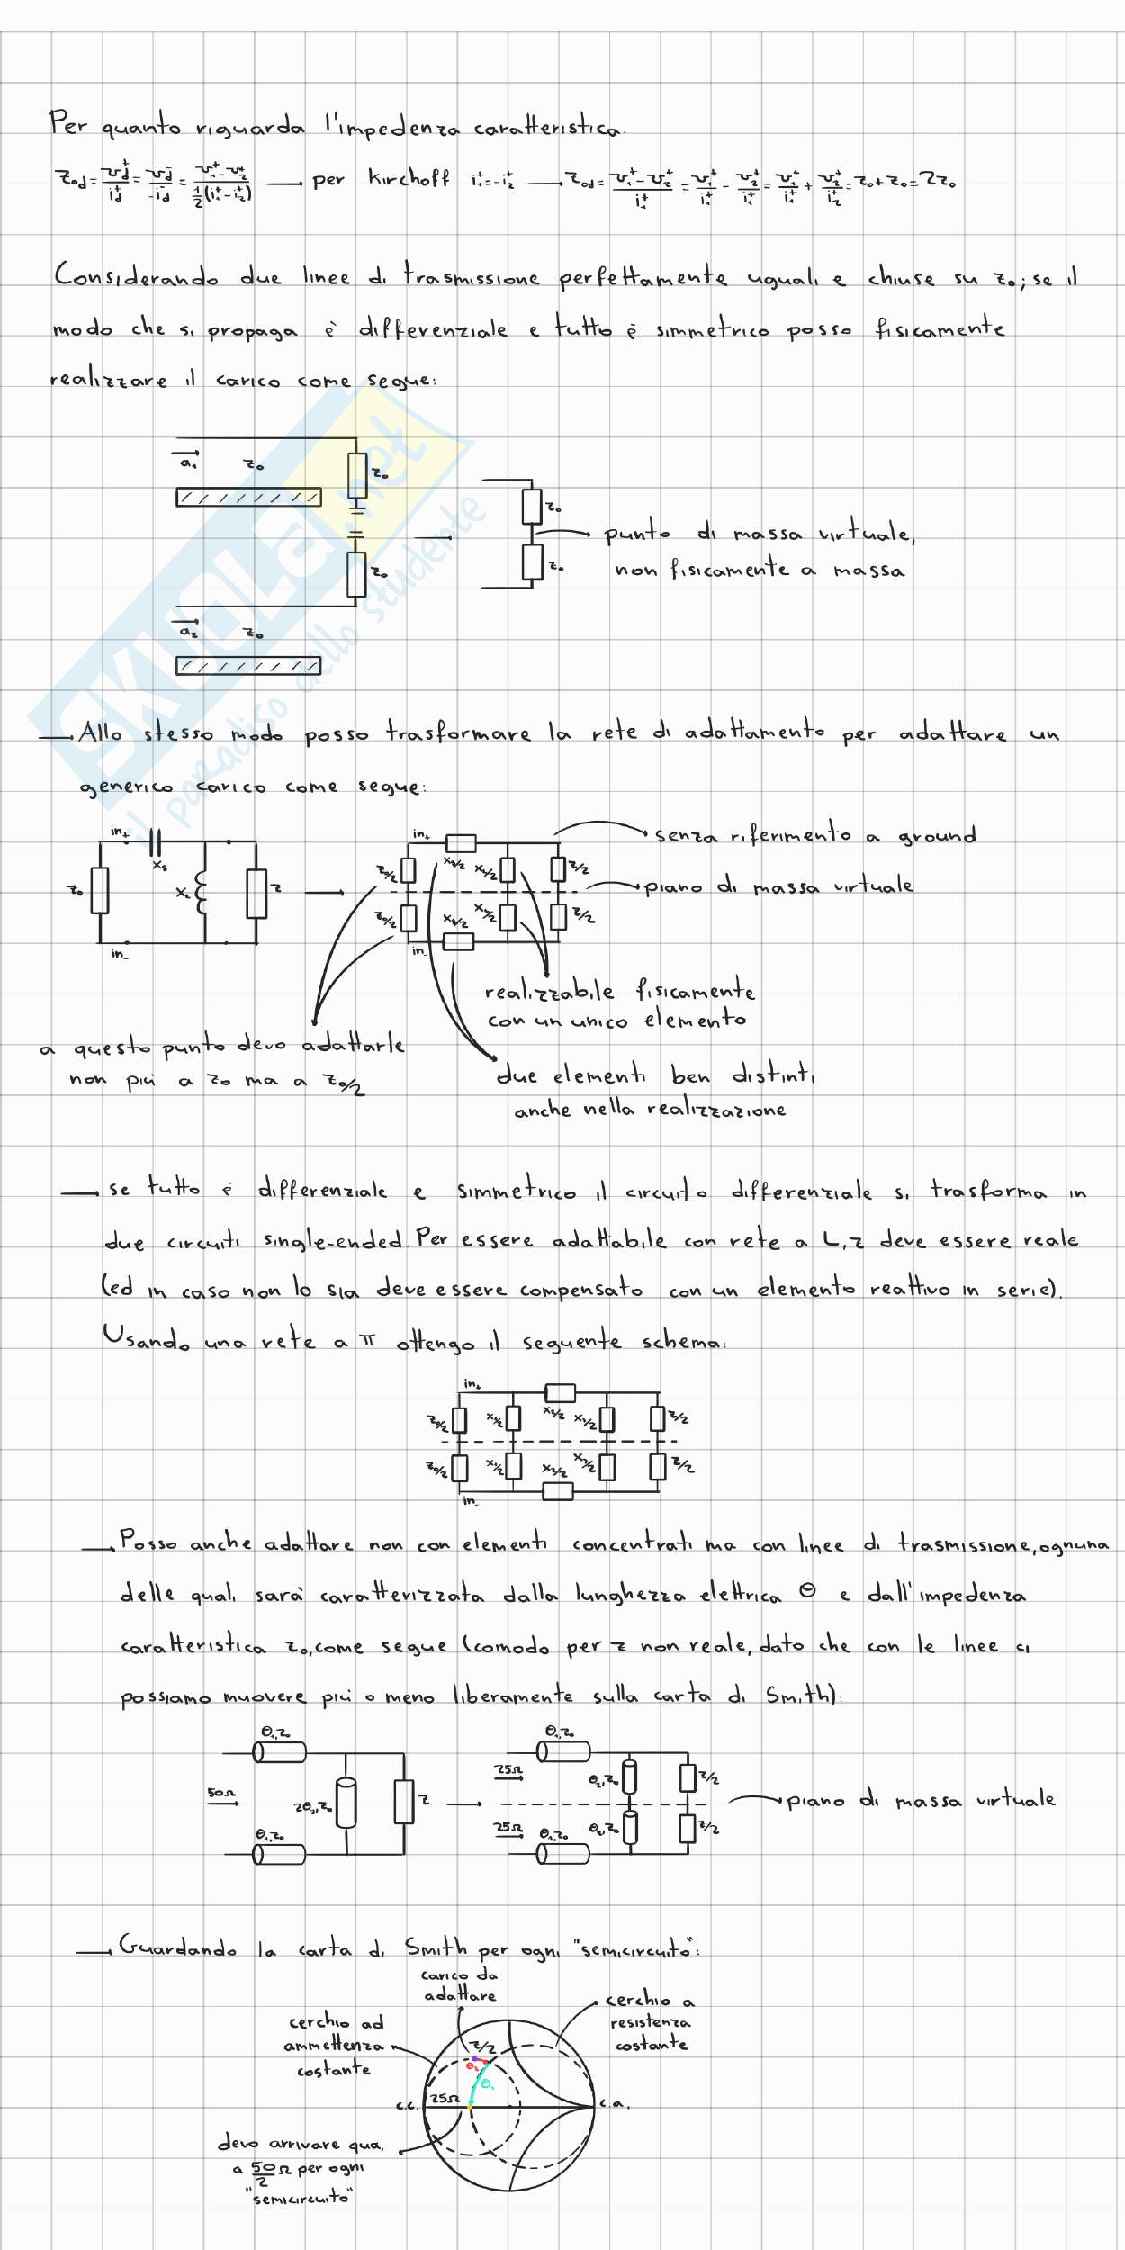 Per quanto riguarda l'impedenza caratteristica
Z₀d = v⁺d/i⁺d = v⁻d/-i⁻d = (v₁⁺-v₂⁺)/(½(i₁⁺-i₂⁺)) → per Kirchoff i₁⁺=-i₂⁺ → Z₀d = (v₁⁺-v₂⁺)/i₁⁺ = v₁⁺/i₁⁺ - v₂⁺/i₁⁺ = v₁⁺/i₁⁺ + v₂⁺/i₂⁺ = Z₀+Z₀ = 2Z₀
Considerando due linee di trasmissione perfettamente uguali e chiuse su Z₀; se il
modo che si propaga è differenziale e tutto è simmetrico posso fisicamente
realizzare il carico come segue:
a₁ Z₀ Z₀
Z₀
punto di massa virtuale,
non fisicamente a massa
Z₀
Z₀
a₂ Z₀
SKUOLA.net
il paradiso dello studente
→ Allo stesso modo posso trasformare la rete di adattamento per adattare un
generico carico come segue:
in₊ X₁ Z₀ X₂ Z in₋
in₊ Z₀/2 X₁/2 X₂/2 Z/2
senza riferimento a ground
piano di massa virtuale
Z₀/2 X₁/2 X₂/2 Z/2 in₋
realizzabile fisicamente
con un unico elemento
a questo punto devo adattarle
non più a Z₀ ma a Z₀/2
due elementi ben distinti
anche nella realizzazione
→ se tutto è differenziale e simmetrico il circuito differenziale si trasforma in
due circuiti single-ended Per essere adattabile con rete a L, Z deve essere reale
(ed in caso non lo sia deve essere compensato con un elemento reattivo in serie).
Usando una rete a π ottengo il seguente schema:
in₊
Z₀/2 X₃/2 X₁/2 X₂/2 Z/2
Z₀/2 X₃/2 X₁/2 X₂/2 Z/2
in₋
→ Posso anche adattare non con elementi concentrati ma con linee di trasmissione, ognuna
delle quali sarà caratterizzata dalla lunghezza elettrica θ e dall'impedenza
caratteristica Z₀, come segue (comodo per Z non reale, dato che con le linee ci
possiamo muovere più o meno liberamente sulla carta di Smith).
θ₁,Z₀ θ₁,Z₀
50Ω 2θ₂,Z₀ Z 25Ω θ₂,Z₀ Z/2
piano di massa virtuale
θ₁,Z₀ 25Ω θ₁,Z₀ θ₂,Z₀ Z/2
→ Guardando la carta di Smith per ogni "semicircuito":
carico da
adattare
cerchio a
resistenza
costante
cerchio ad
ammettenza
costante
Z/2
θ₂
θ₁
c.c. 25Ω c.a.
devo arrivare qua,
a 50/2 Ω per ogni
"semicircuito"